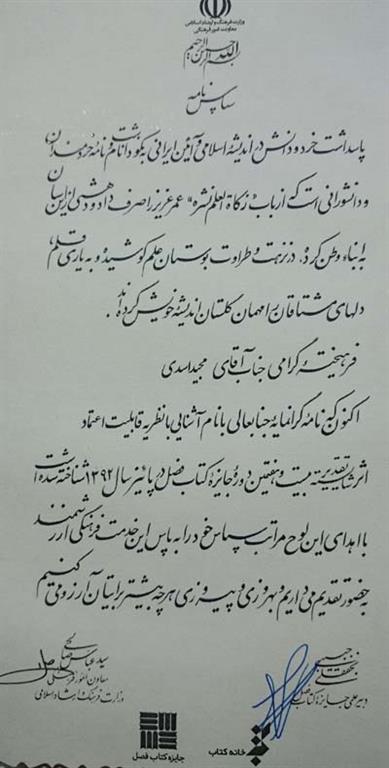 وزارت فرهنگ و ارشاد اسلامی
معاونت امور فرهنگی
بسم الله الرحمن الرحیم
سپاس نامه
پاسداشت خرد و دانش در اندیشه اسلامی و آیین ایرانی نکوداشت نام و نامه خردمندان
و دانشورانی است که از باب "زکاة العلم نشره" عمر عزیز را صرف داد و دهشی از این سان
به ابناء وطن کرده، در نزهت و طراوت بوستان علم کوشیده و به یاری قلم،
دلهای مشتاقان را مهمان گلستان اندیشه خویش کرده‌اند.
فرهیخته گرامی جناب آقای مجید اسدی
اکنون که نامه گرانمایه جنابعالی با نام آشنایی با نظریه قابلیت اعتماد
اثر شایسته تقدیر بیست و هفتمین دوره جایزه کتاب فصل در پاییز سال ۱۳۹۲ شناخته شده است
با اهدای این لوح مراتب سپاس خود را به پاس این خدمت فرهنگی ارزشمند
به حضور تقدیم می‌داریم و بهروزی و پیروزی هر چه بیشتر برایتان آرزو می‌کنیم
سید عباس صالحی
معاون امور فرهنگی
وزارت فرهنگ و ارشاد اسلامی
دبیر علمی جایزه کتاب فصل
جایزه کتاب فصل
خانه کتاب